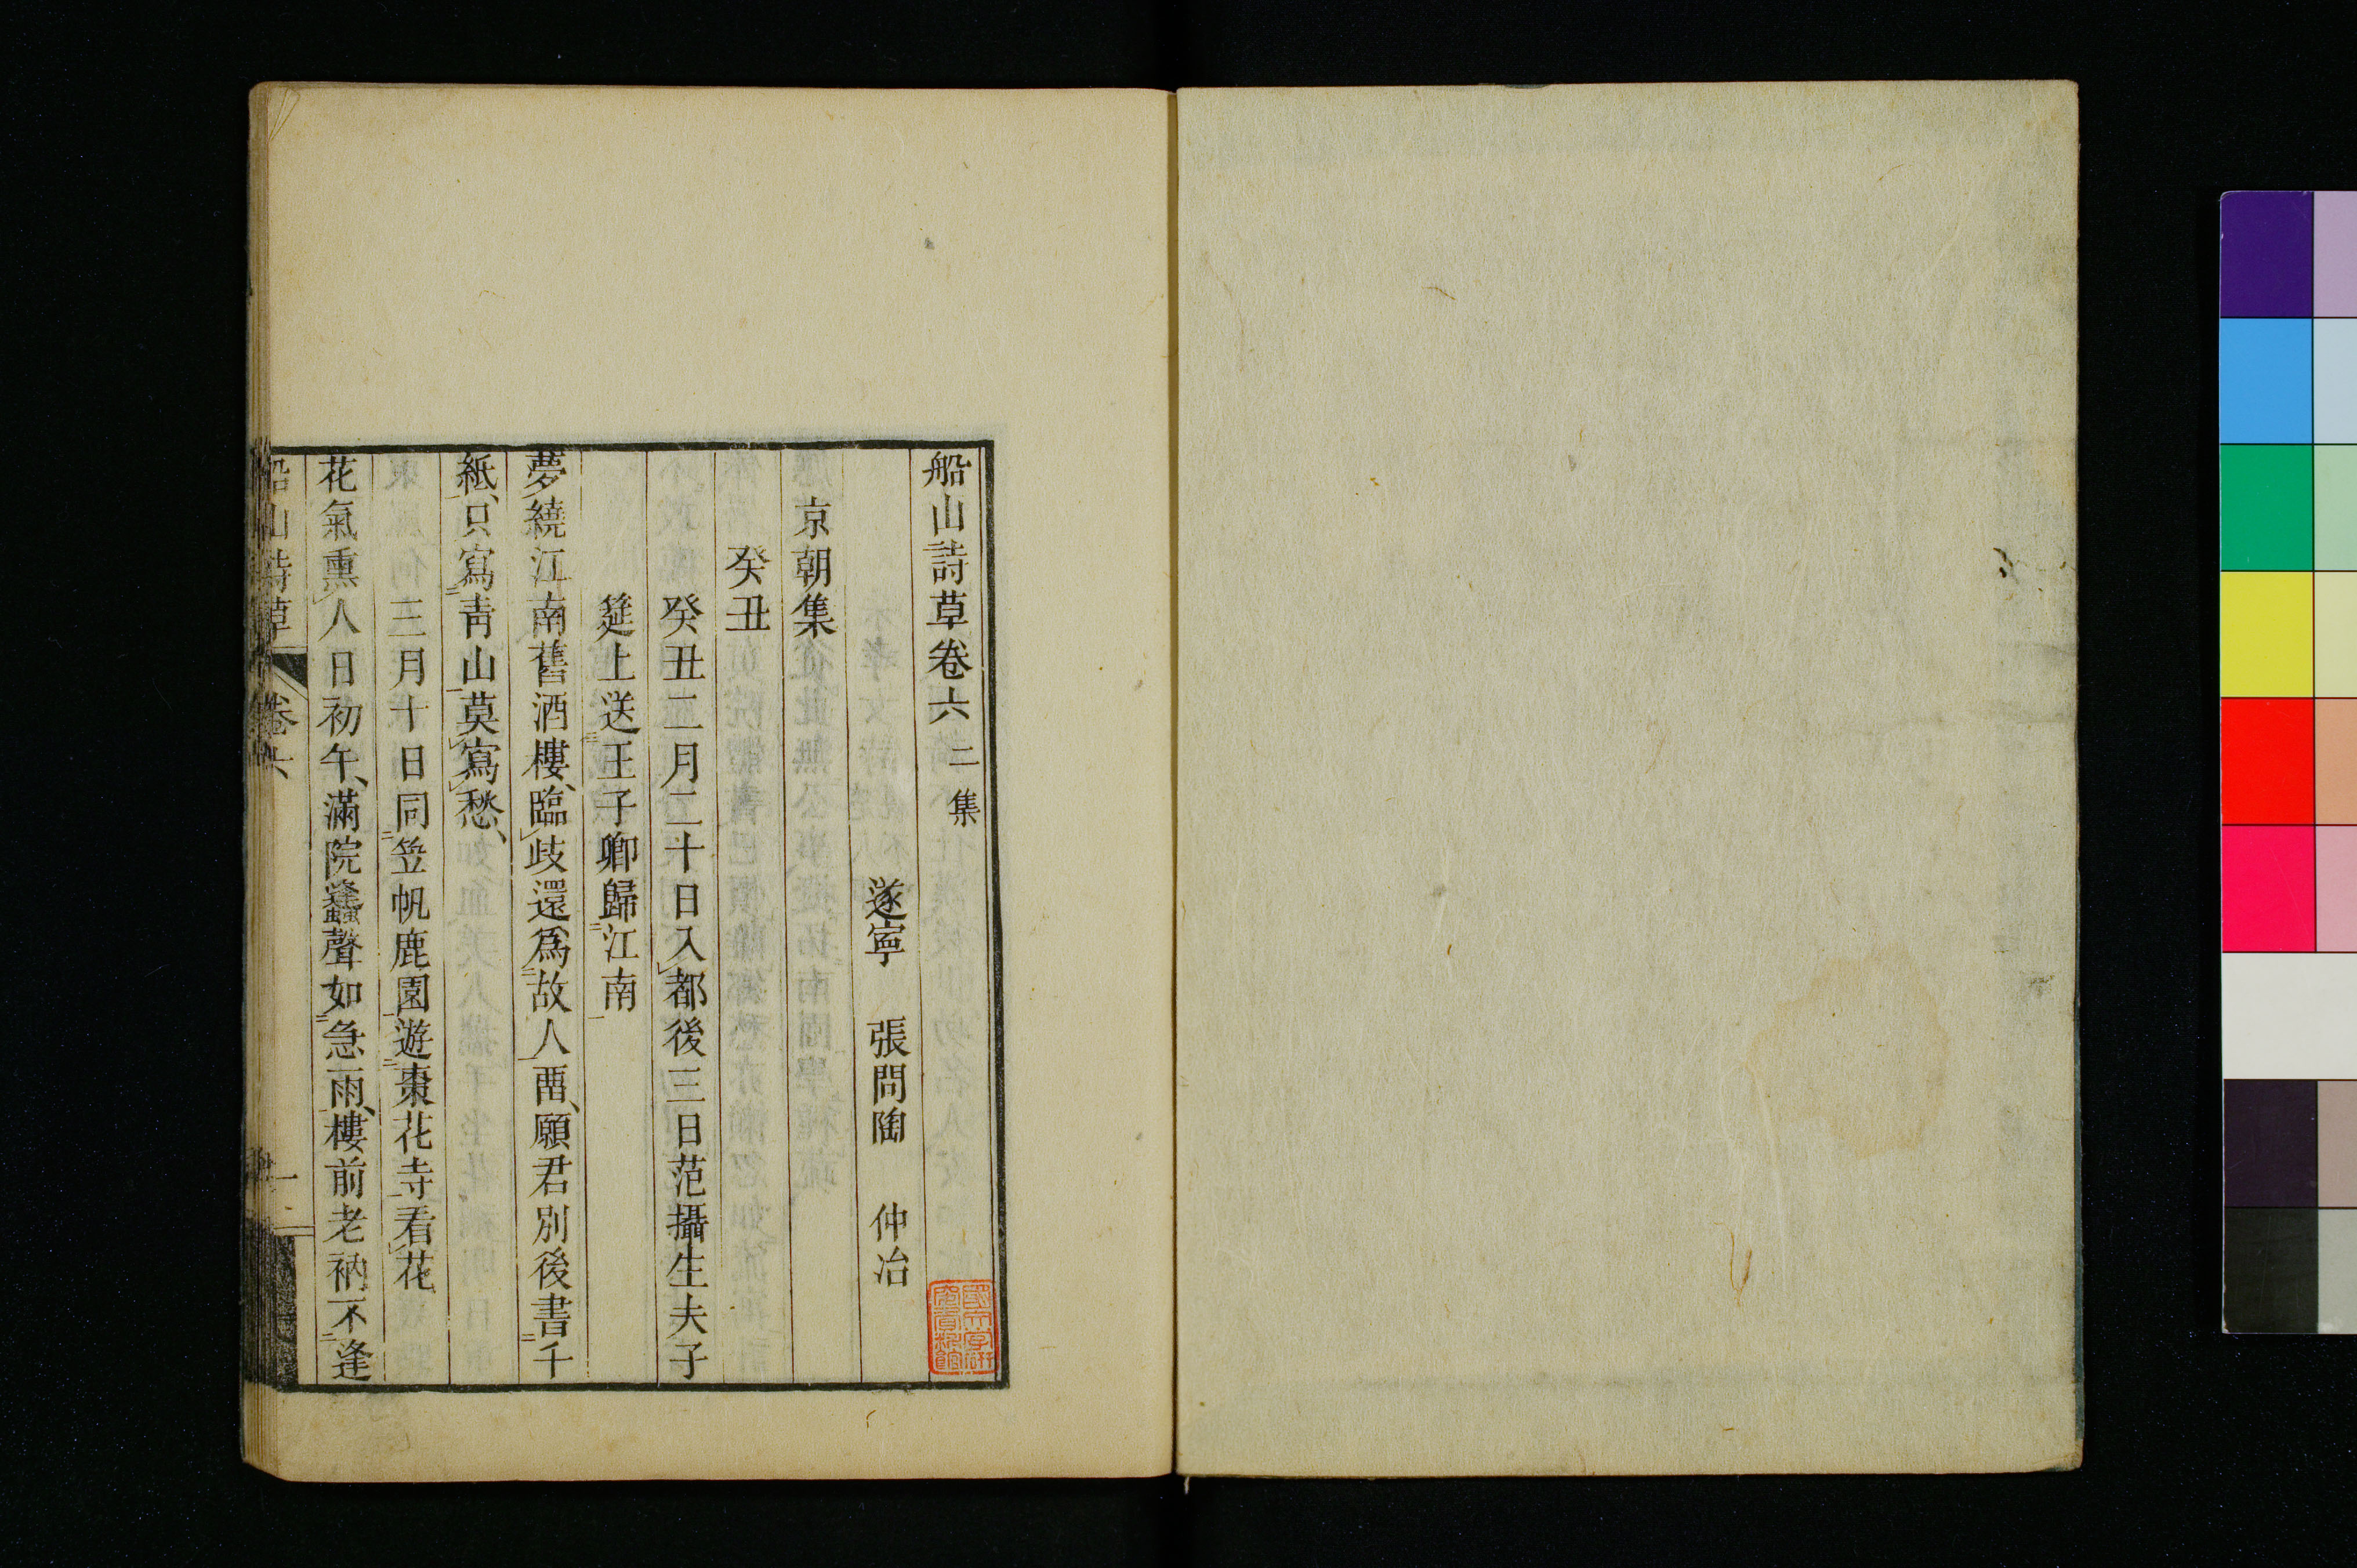 船山詩草卷六 二集
遂寧 張問陶 仲冶
京朝集
癸丑
癸丑二月二十日入都後三日范攝生夫子
筵上送王子卿歸江南
夢繞江南舊酒樓、臨歧還爲故人畱、願君別後書千
紙、只寫靑山莫寫愁、
三月十日同笠帆鹿園遊棗花寺看花
花氣熏人日初午、滿院蠭聲如急雨、樓前老衲不逢
船山詩草 卷六 一